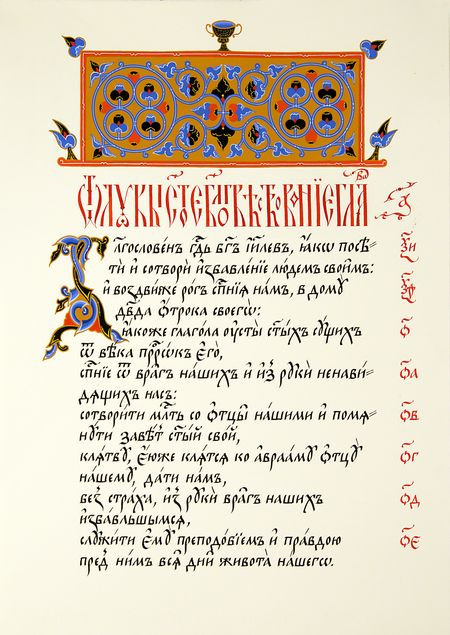 Ѿ лꙋкѝ ст҃о́е бл҃говѣствова́нїе глⷡ҇а̀ а҃
Бл҃гослове́нъ гдⷭ҇ь бг҃ъ і҆и҃левъ, ꙗ҆́кѡ посѣ= ѯ҃и
тѝ и҆ сотворѝ и҆збавле́нїе лю́демъ свои̑мъ:
и҆ воздви́же ро́гъ сп҃се́нїѧ на́мъ, в домꙋ̀ ѯ҃ѳ
дв҃да ѻ҆́трока своегѡ̀:
ꙗ҆́коже глаго́ла ᲂу҆сты̀ ст҃ы́хъ сꙋ́щихъ ѻ҃
ѿ вѣ́ка прⷪ҇рѡ́къ є҆гѡ̀,
сп҃се́нїе ѿ вра̑гъ на́шихъ и҆ и҆з̾ рꙋкѝ ненави́= ѻ҃а
дѧщихъ на́съ:
сотвори́ти млⷭ҇ть со ѻ҆тцы̑ на́шими и҆ помѧ= ѻ҃в
нꙋ́ти завѣ́тъ ст҃ы́й сво́й,
клѧ́твꙋ, є҆́юже клѧ́тсѧ ко а҆враа́мꙋ ѻ҆тцꙋ̀ ѻ҃г
на́шемꙋ, да́ти на́мъ,
без̾ стра́ха, и҆з̾ рꙋкѝ вра̑гъ на́шихъ ѻ҃д
и҆зба́вльшымсѧ,
слꙋжи́ти є҆мꙋ̀ преподо́бїемъ и҆ пра́вдою ѻ҃є
пред̾ ни́мъ всѧ̑ дни̑ живота̀ на́шегѡ.